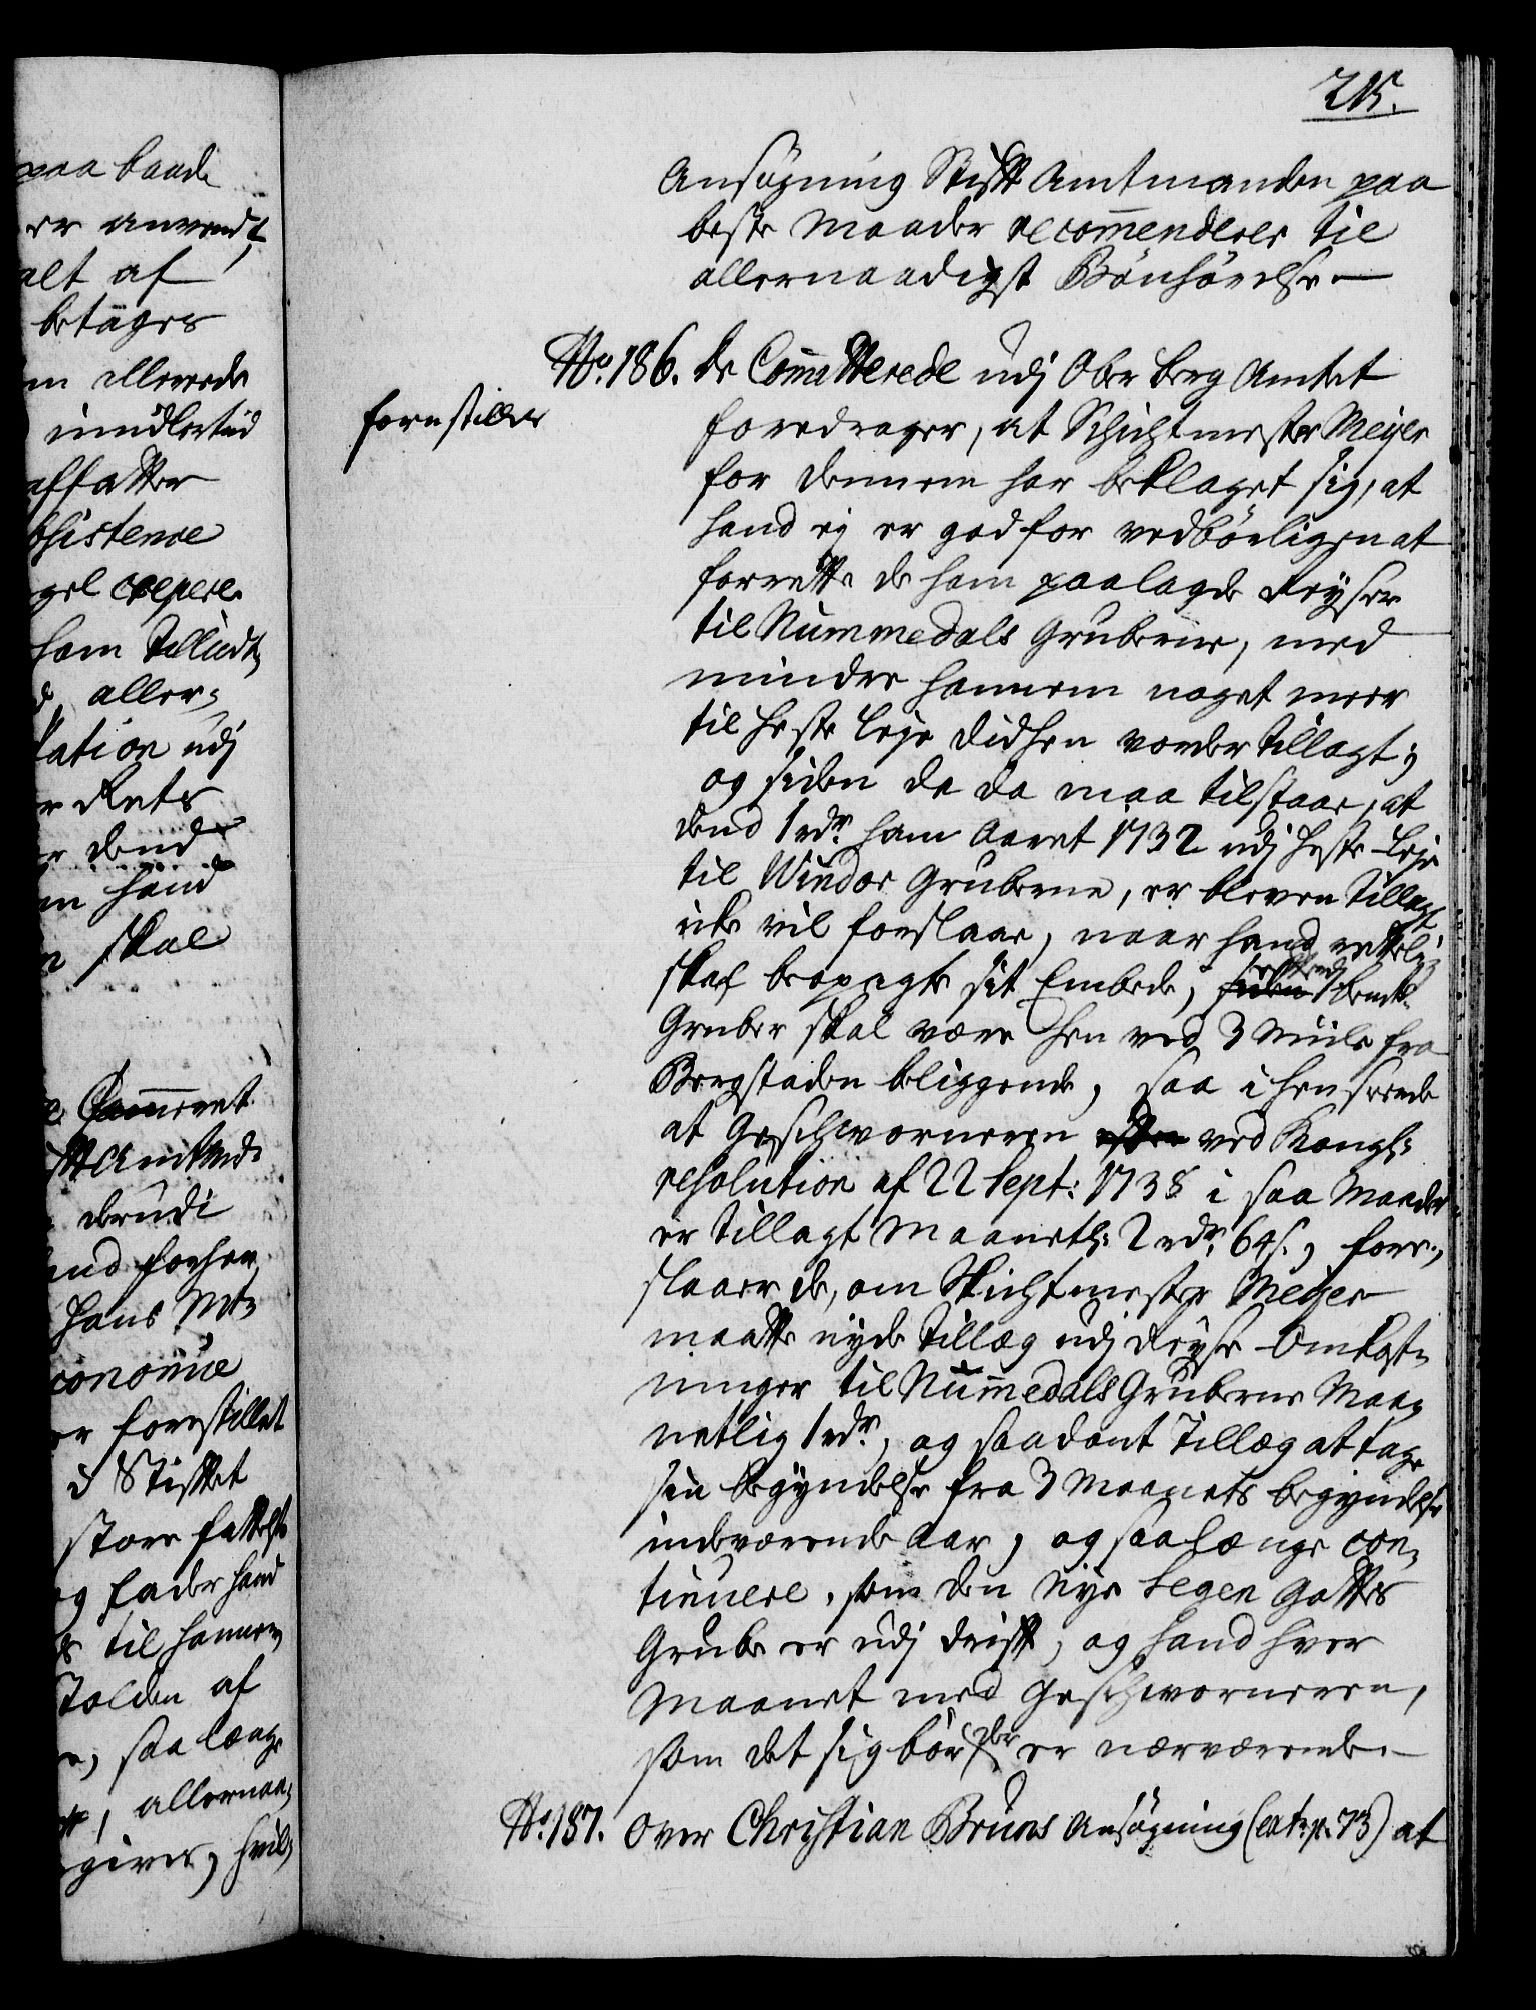 215.
Ansøgning Stift Amtmanden paa
beste Maader recom̄enderer til
allernaadigst Bönhörelse.
No. 186. De Com̄itterede udj Ober Berg Amtet
forestiller
foredrager, at Schichtmester Meyer
for dennem har beklaget sig, at
hand ej er god for vedbörligen at
forrette de ham paalagde Reyser
til Nummedals Gruberne, med
mindre hannem noget meer
til Heste Leje didhen vorder tillagt;
og siden de da maa tilstaae, at
dend 1 rdr. ham Aaret 1732 udj Heste Leje
til Windor Gruberne, er bleven tillagt
icke vil forslaae, naar hand rettelig
skal beopagte sit Embede, bemte.
Gruber skal være hen ved 3 Miile fra
Bergstaden beliggende, saa i henseende
at Geschworneren ved Kongl:
resolution af 22 Sept: 1738 i saa Maader
er tillagt Maanetl: 2 rdr. 64 s., fore-,
slaaer de, om Skichtmester Meyer
maatte nyde Tillæg udj Reyse Omkost-
ninger til Num̄edals Gruberne Maa-
netlig 1 rdr., og saadant Tillæg at tage
sin begyndelse fra 3 Maanets begyndelse
indeværende Aar, og saa længe con-
tinuere, som den Nye Segen Gottes
Grube er udj drift, og hand hver
Maanet med Geschworneren,
som det sig bör, der er nærværende.
No. 187. Over Christian Bruns Ansøgning (ext: p. 73) at
paa baade
er anvendt,
alt af
betages
en allerede
imidlertid
affatter
bsistence
gel crepere.
ham Tilladt,
aller-
tation udj
Rets
dend
hand
skal
Cam̄eret
Amtmd.
derudi
forhen
Hans Mt.
conomie
forestillet
Stiftet
store fattelse
og fader hand
til hannem
Tolden af
saa længe
allernaa-
giver, hvil-